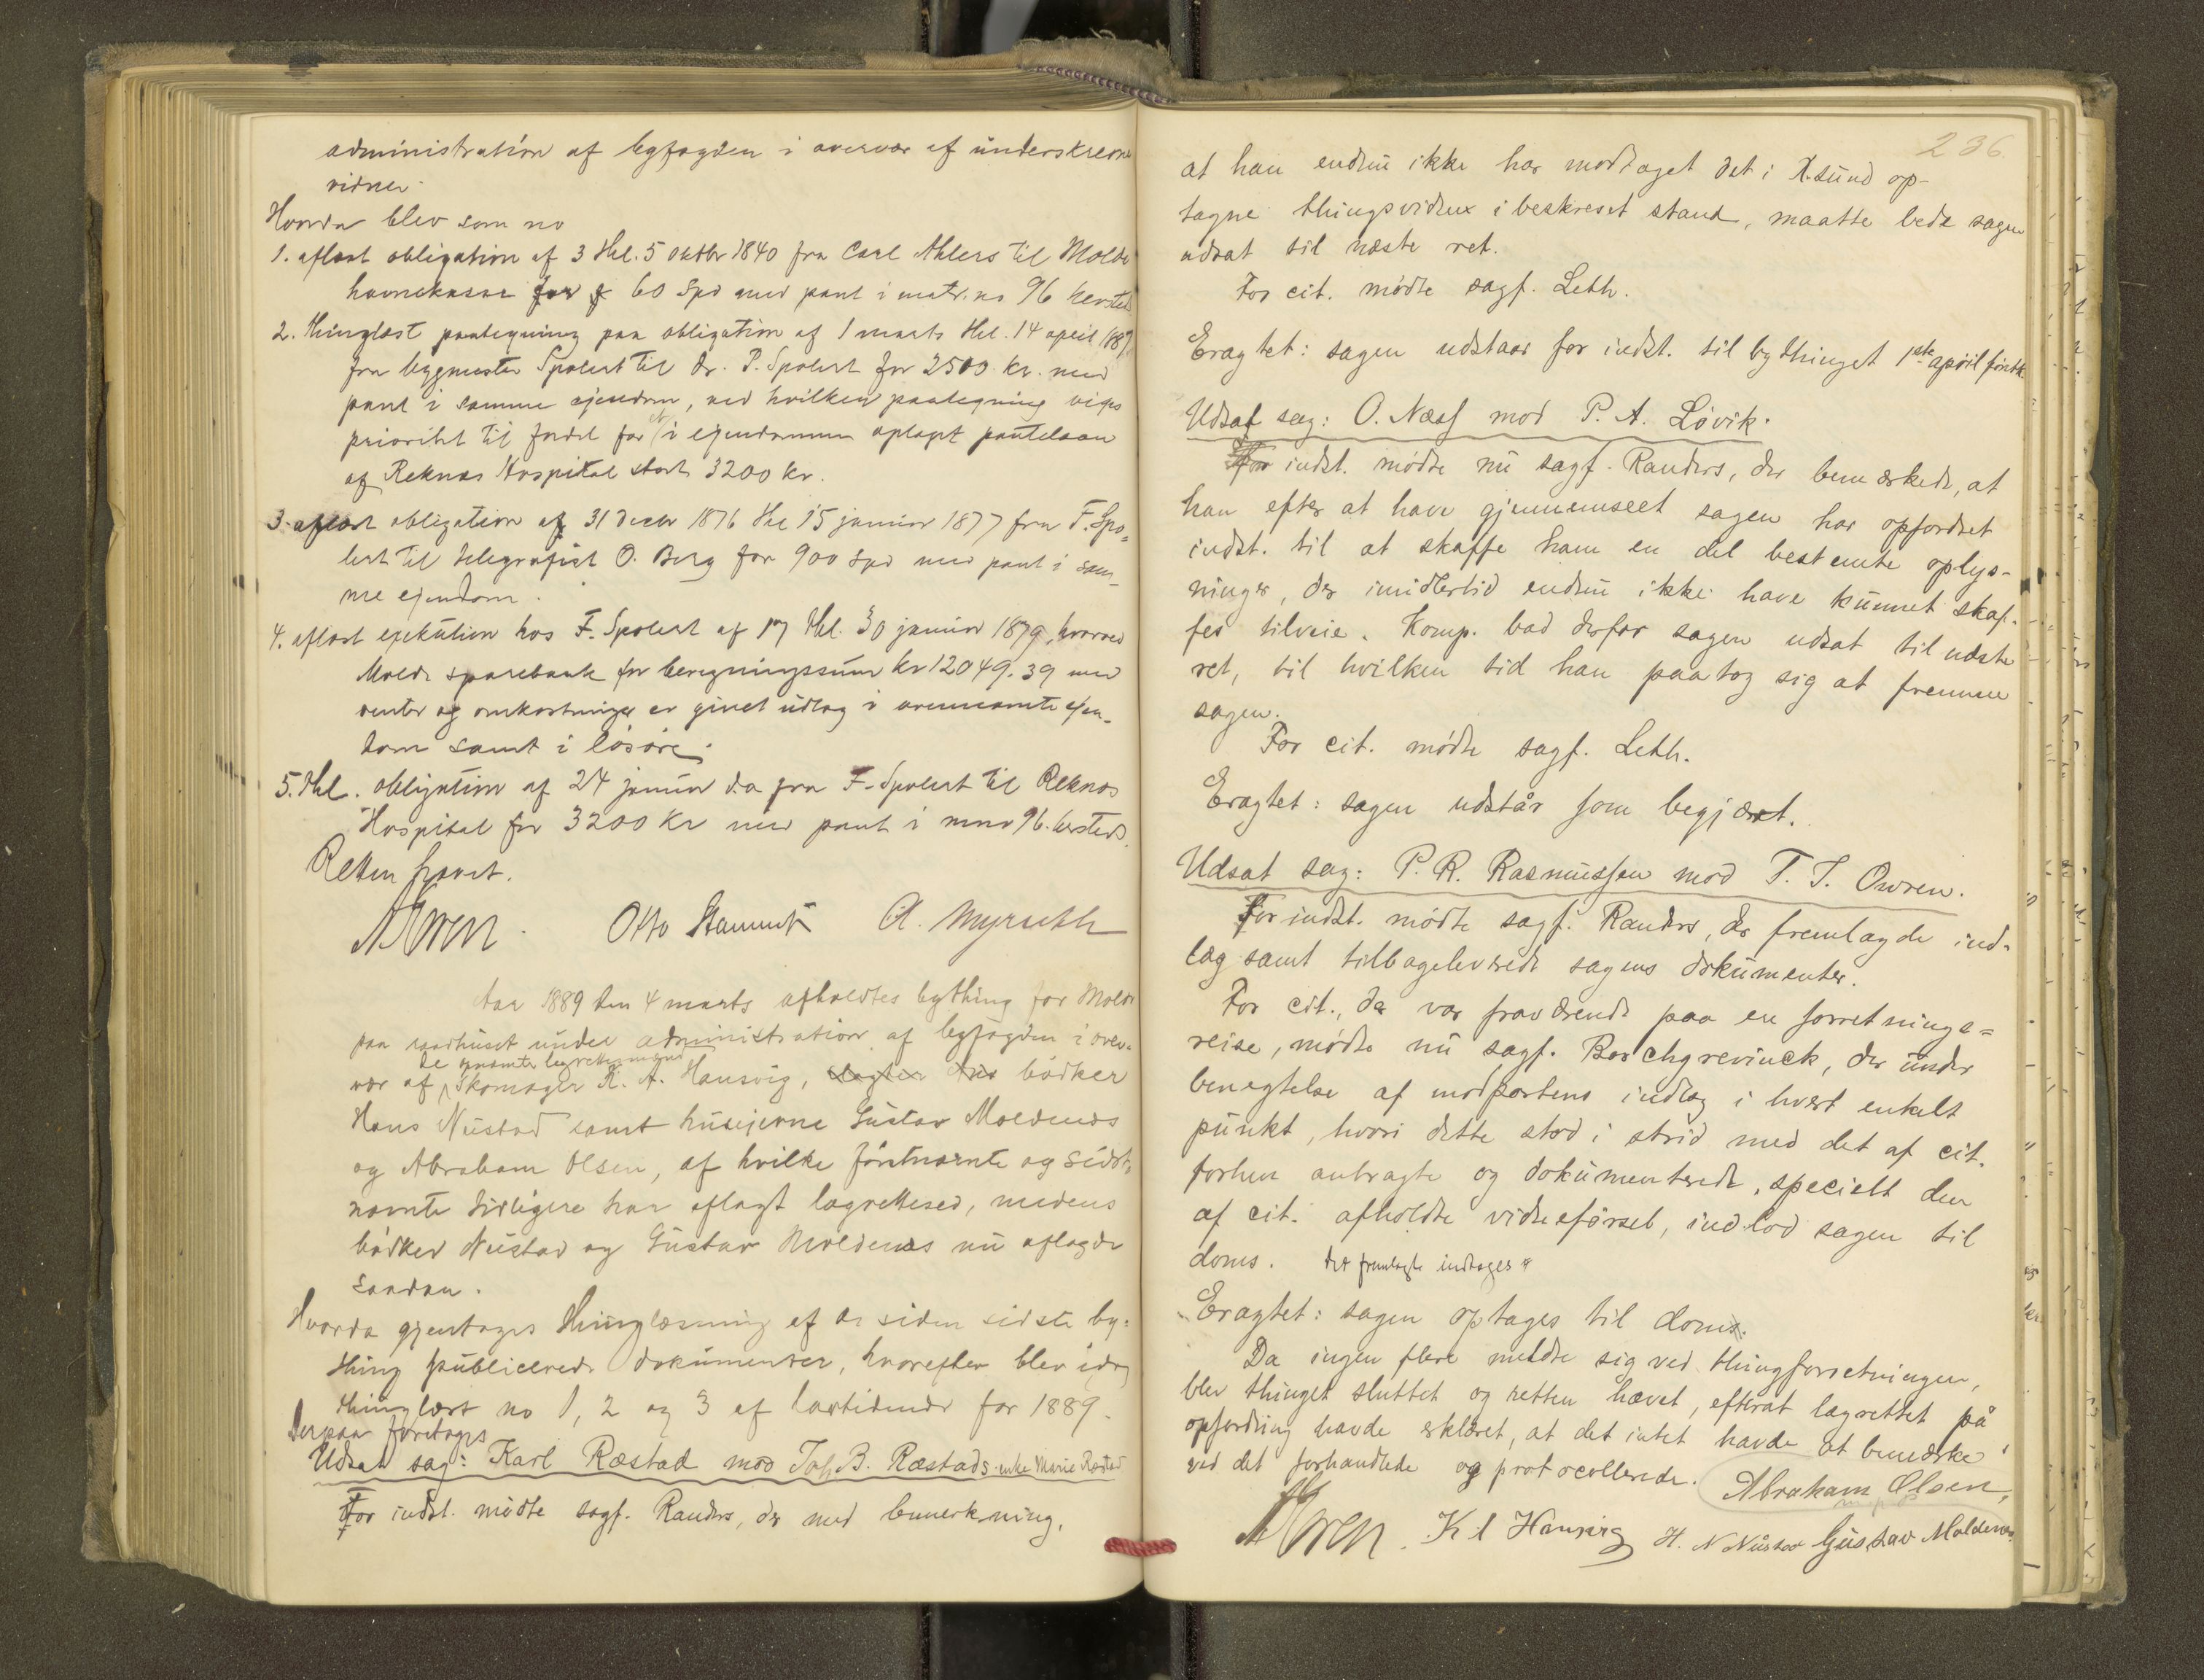 administration af byfogden i overvær af underskrevne
vidner.
Hvorda blev som no
1. aflæst obligation af 3 thl. 5 oktbr 1840 fra Carl Ahlers til Molde
havnekasse for 60 Spd med pant i matr. no 96 hersteds
2. thinglæst paategning paa obligation af 1 marts thl. 14 april 1887
fra bygmester Spolert til dr. P. Spolert for 2500 kr. med
pant i samme ejendom, ved hvilken paategning viges
prioritet til fordel for et i ejendommen optaget pantelaan
af Reknæs Hospital stort 3200 kr.
3. aflæst obligation af 31 decbr 1876 thl 15 januar 1877 fra F. Spo=
lert til telegrafist O. Berg for 900 spd med pant i sam-
me ejendom.
4. aflæst exekution hos F. Spolert af 17 thl. 30 januar 1879, hvorved
Molde sparebank for beregningssum kr 12049.39 med
renter og omkostninger er givet udlæg i ovennævnte ejen-
dom samt i løsøre.
5. thl. obligation af 24 januar d.a fra F. Spolert til Reknæs
Hospital for 3200 kr med pant i mno 96. hersteds.
Retten hævet.
Owren. Otto Stammnes A. Myrseth
Aar 1889 den 4 marts afholdtes bything for Molde
paa raadhuset under administration af byfogden i over-
de opnævnte lagrettesmænd
vær af Skomager K. A. Hansvig, bødker
Hans Nustad samt husejerne Gustav Moldenæs
og Abraham Olsen, af hvilke førstnævnte og sidst-
nævnte tidligere har aflagt lagrettesed, medens
bødker Nustad og Gustav Moldenæs nu aflagde
saadan.
Hvorda gjentoges thinglæsning af de siden sidste by-
thing publicerede dokumenter, hvorefter blev idag
thinglæst no 1, 2 og 3 af lovtidende for 1889.
Derpaa foretoges
Udsat sag: Karl Ræstad mod Joh. B. Ræstads enke Marie Ræstad
For indst. mødte sagf. Randers, der med bemerkning,
236.
at han endnu ikke har modtaget det i X.sund op-
tagne thingsvidne i beskrevet stand, maatte bede sagen
udsat til næste ret.
For cit. mødte sagf. Leth.
Eragtet: sagen udstaar for indst. til bythinget 1ste april førstk.
Udsat sag: O. Næss mod P. A. Løvik.
For indst. mødte nu sagf. Randers, der bemærkede, at
han efter at have gjennemseet sagen har opfordret
indst. til at skaffe ham en del bestemte oplys-
ninger, der imidlertid endnu ikke have kunnet skaf-
fes tilveie. Komp. bad derfor sagen udsat til næste
ret, til hvilken tid han paatog sig at fremme
sagen.
For cit. mødte sagf. Leth.
Eragtet: sagen udstår som begjæret.
Udsat sag: P. R. Rasmussen mod T. T. Owren.
For indst. mødte sagf. Randers, der fremlagde ind-
læg samt tilbageleverede sagens dokumenter.
For cit., der var fraværende paa en forretnings=
reise, mødte nu sagf. Borchgrevinck, der under
benegtelse af modpartens indlæg i hvert enkelt
punkt, hvori dette stod i strid med det af cit.
forhen anbragte og dokumenterede, specielt den
af cit. afholdte vidneførsel, indlod sagen til
doms. Det fremlagte indtages
Eragtet: sagen optages til doms.
Da ingen flere meldte sig ved thingforretningen,
blev thinget sluttet og retten hævet, efterat lagrettet på
opfordring havde erklæret, at det intet havde at bemærke
ved det forhandlede og protocollerede. Abraham Olsen,
m p p
Owren. K A Hansvig H. N Nustad Gustav Moldenæs